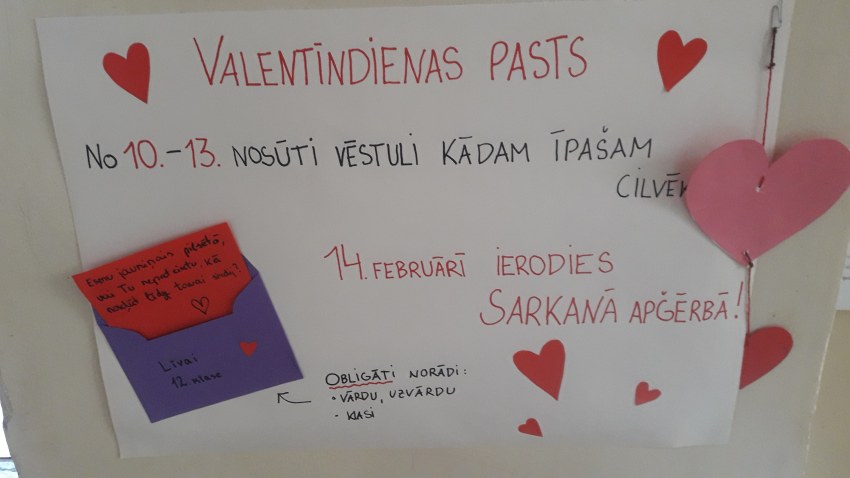 VALENTĪNDIENAS PASTS
No 10.-13. NOSŪTI VĒSTULI KĀDAM ĪPAŠAM
CILVĒK
14. FEBRUĀRĪ IERODIES
SARKANĀ APĢĒRBĀ!
Esmu jauniņais pilsētā,
vai Tu nepateiktu, kā
nokļūt līdz tavai sirdij?
Līvai
12. klase
OBLIGĀTI NORĀDI:
• VĀRDU, UZVĀRDU
• KLASI